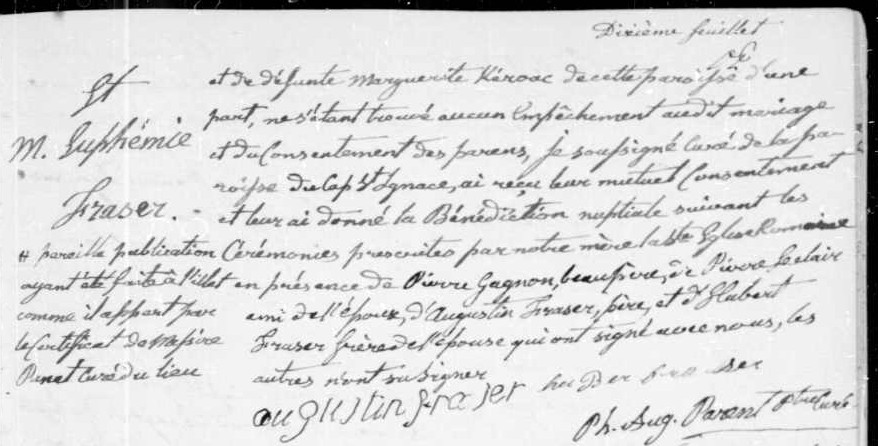 Dixième feuillet
et de défunte Marguerite Kéroac de cette paroisse d'une
part, ne s'étant trouvé aucun Empêchement audit mariage
et du Consentement des parens, je soussigné Curé de la pa-
roisse du Cap St Ignace, ai reçu leur mutuel Consentement
et leur ai donné la Bénédiction nuptiale suivant les
Cérémonies prescrites par notre mère la Ste Eglise Romaine
en présence de Pierre Gagnon, beaufrère, de Pierre Leclair
ami de l'époux, d'Augustin Fraser, père, et d'Hubert
Fraser frère de l'épouse qui ont signé avec nous, les
autres n'ont su signer
augustin fraser huber fraser
Ph. Aug. Parent Ptre Curé
Et
M. Euphémie
Fraser.
# pareille publication
ayant été faite à l'illet
comme il appert par
le Certificat de Messire
Panet Curé du lieu